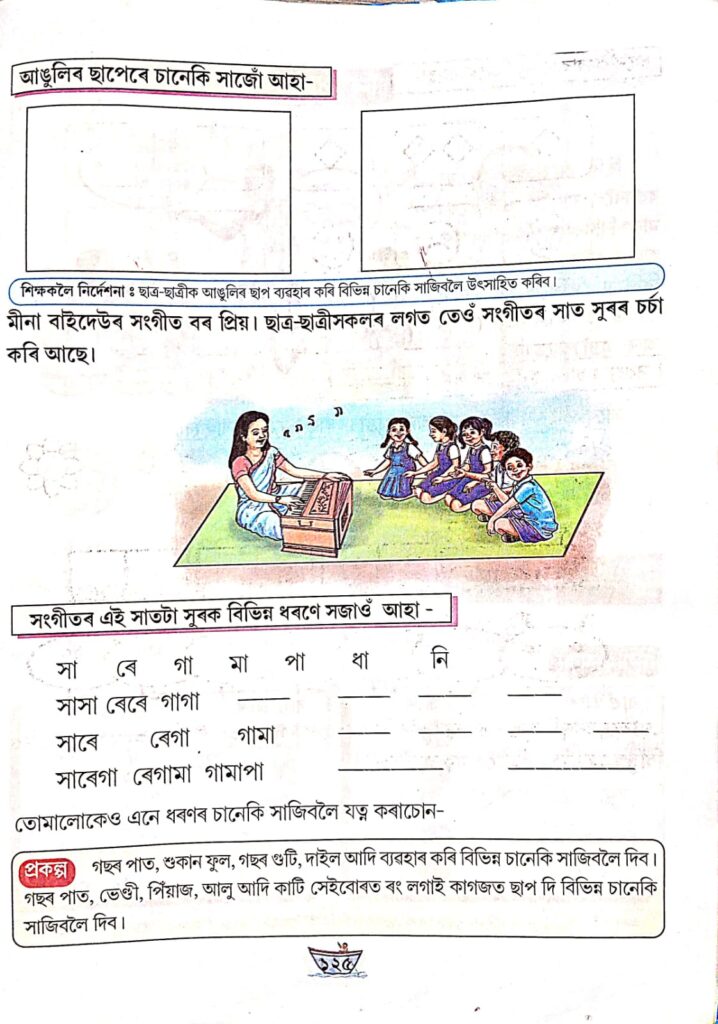 আঙুলিৰ ছাপেৰে চানেকি সাজোঁ আহা-
শিক্ষকলৈ নিৰ্দেশনা : ছাত্ৰ-ছাত্ৰীক আঙুলিৰ ছাপ ব্যৱহাৰ কৰি বিভিন্ন চানেকি সাজিবলৈ উৎসাহিত কৰিব।
মীনা বাইদেউৰ সংগীত বৰ প্ৰিয়। ছাত্ৰ-ছাত্ৰীসকলৰ লগত তেওঁ সংগীতৰ সাত সুৰৰ চৰ্চা
কৰি আছে।
সংগীতৰ এই সাতটা সুৰক বিভিন্ন ধৰণে সজাওঁ আহা -
সা ৰে গা মা পা ধা নি
সাসা ৰেৰে গাগা ____ ____ ____ ____
সাৰে ৰেগা গামা ____ ____ ____ ____
সাৰেগা ৰেগামা গামাপা ________ ________
তোমালোকেও এনে ধৰণৰ চানেকি সাজিবলৈ যত্ন কৰাচোন-
প্ৰকল্প গছৰ পাত, শুকান ফুল, গছৰ গুটি, দাইল আদি ব্যৱহাৰ কৰি বিভিন্ন চানেকি সাজিবলৈ দিব।
গছৰ পাত, ভেণ্ডী, পিঁয়াজ, আলু আদি কাটি সেইবোৰত ৰং লগাই কাগজত ছাপ দি বিভিন্ন চানেকি
সাজিবলৈ দিব।
১২৫